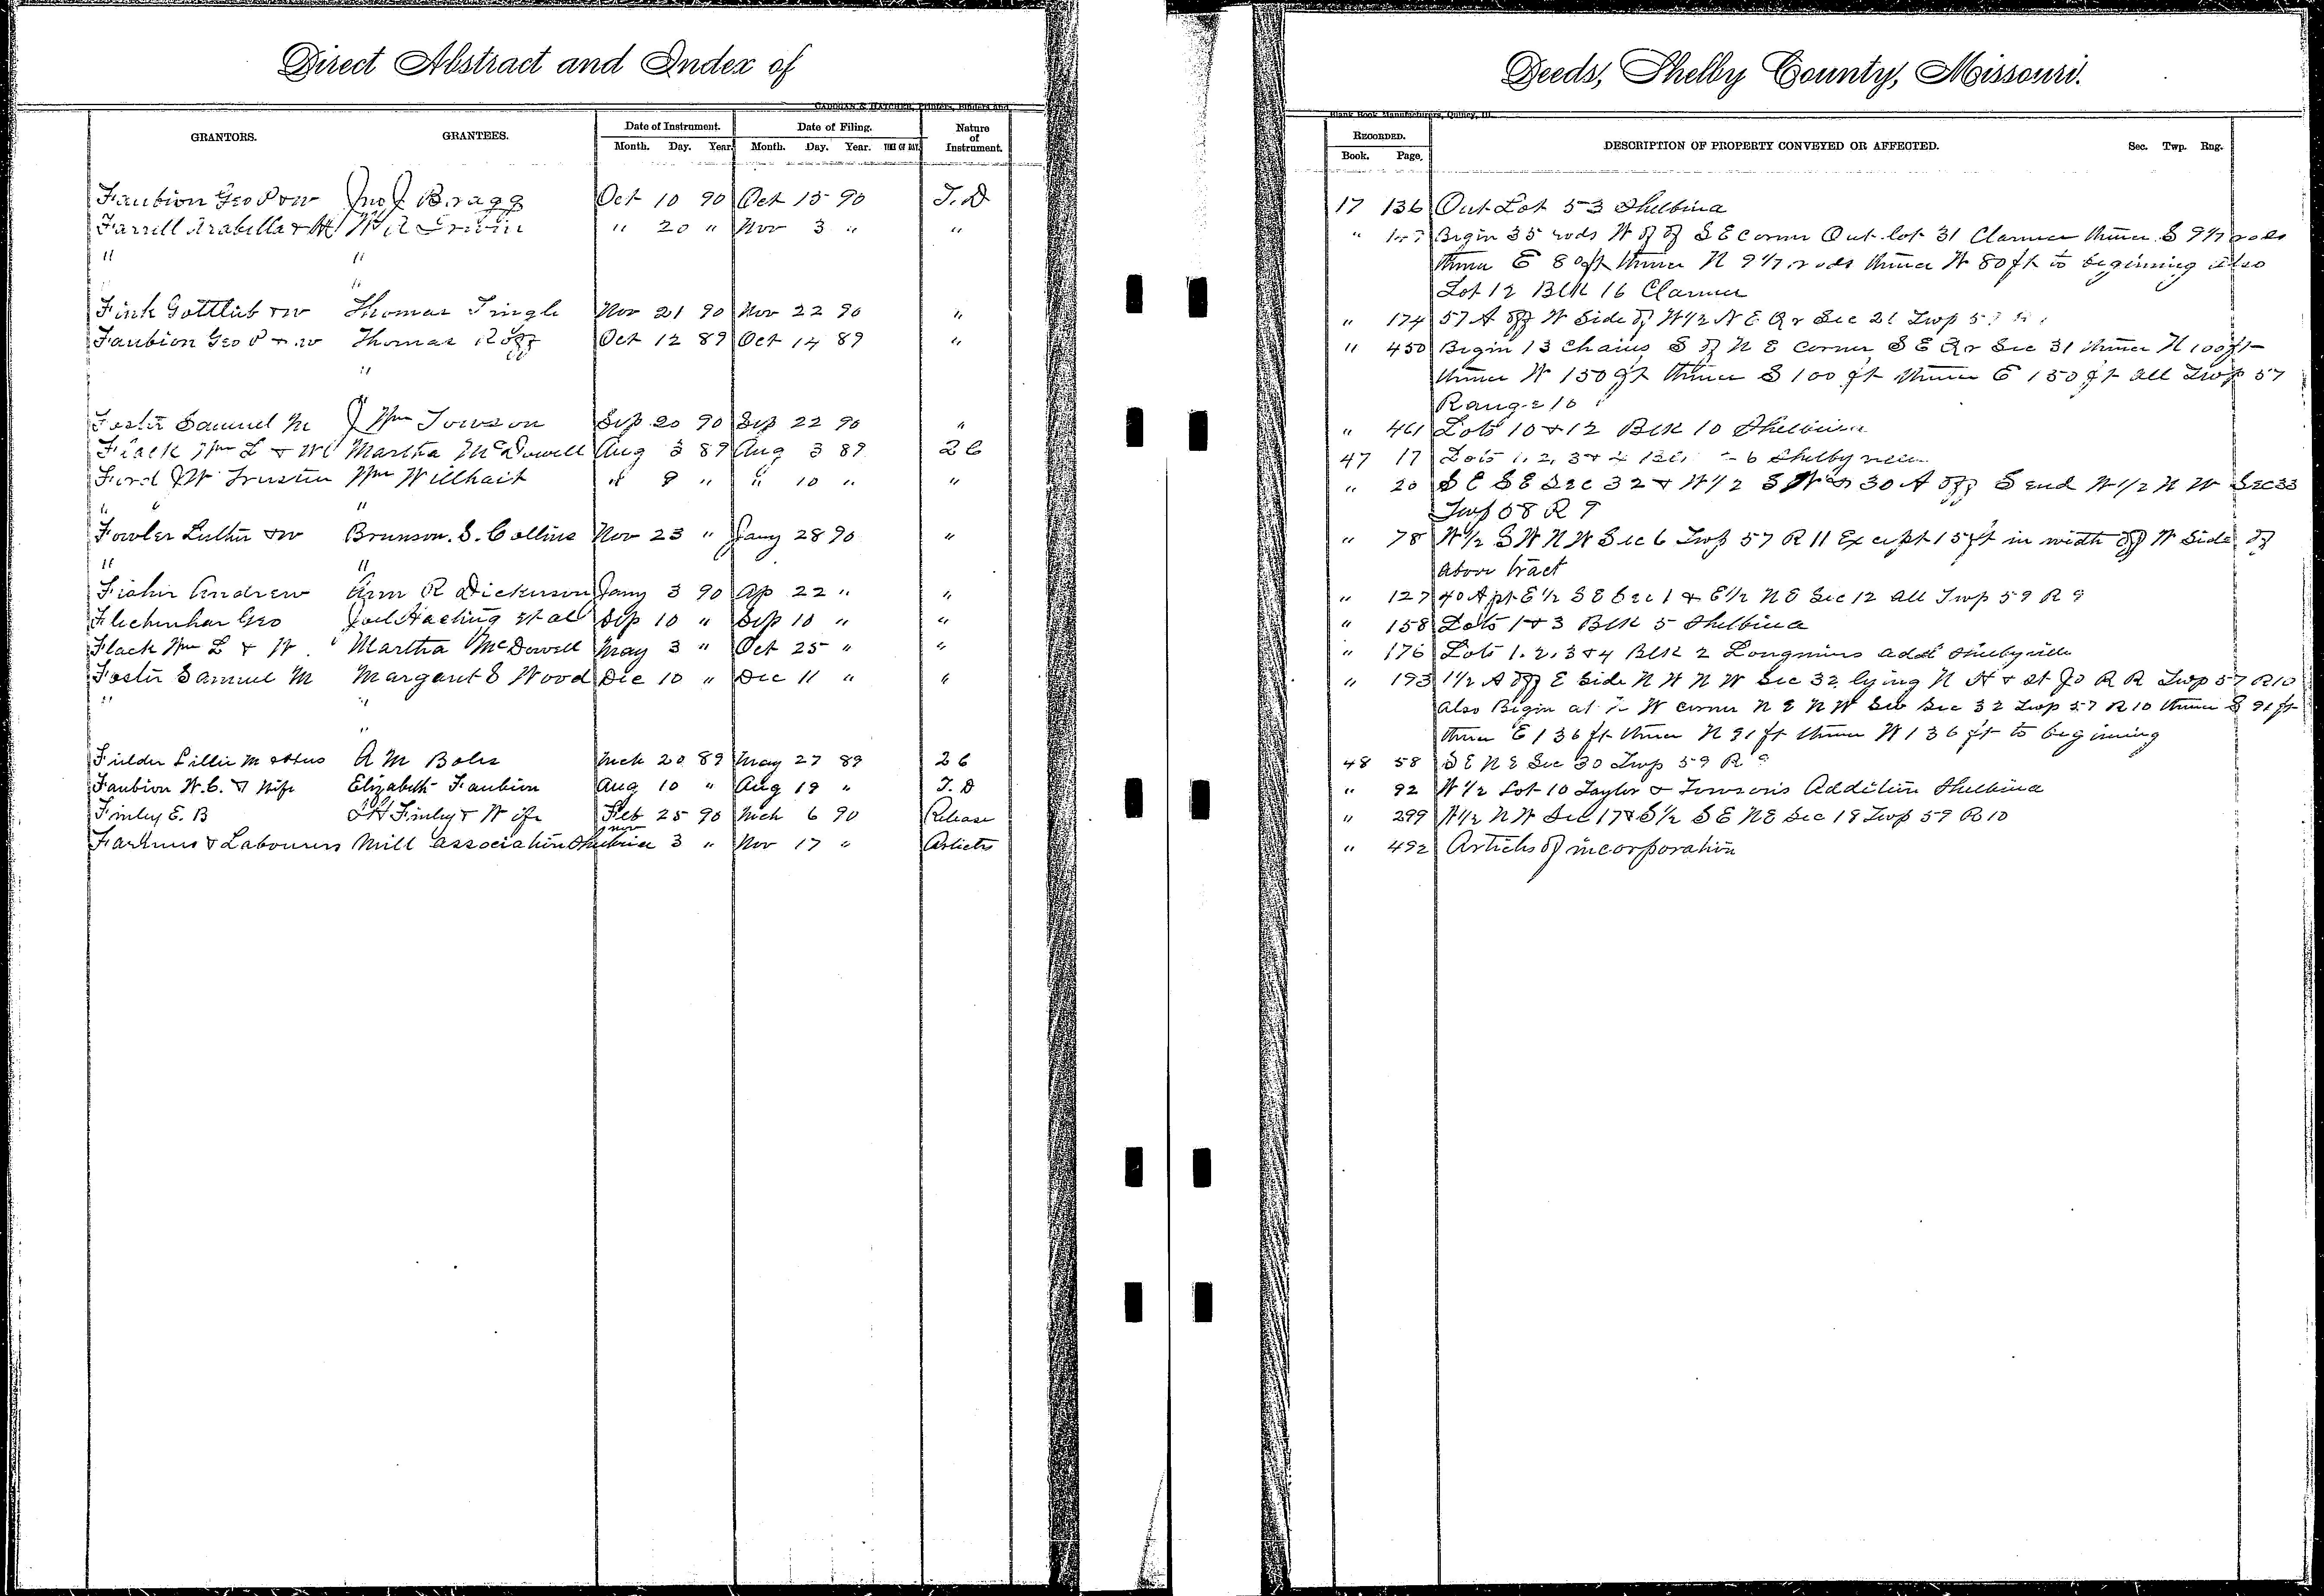 Direct Abstract and Index of
Deeds, Shelby County, Missouri.
CADOGAN & HATCHER, Printers, Binders and
Blank Book Manufacturers, Quincy, Ill.
GRANTORS. GRANTEES. Date of Instrument. Date of Filing. Nature of Instrument.
Month. Day. Year. Month. Day. Year. TIME OF DAY.
RECORDED. DESCRIPTION OF PROPERTY CONVEYED OR AFFECTED. Sec. Twp. Rng.
Book. Page.
Faubion Geo P & w Jno J Bragg Oct 10 90 Oct 15 90 T. D 17 136 Out Lot 53 Shelbina
Farrell Arabella & H W A Irwin " 20 " Nov 3 " " " Begin 35 rods W of SE corner Out lot 31 Clarence thence S 9 1/7 rods
" " thence E 80ft thence N 9 1/7 rods thence W 80ft to beginning also
" Lot 12 Blk 16 Clarence
Fink Gottlieb & w Thomas Pringle Nov 21 90 Nov 22 90 " " 174 57 A off W Side of W 1/2 N E Qr Sec 21 Twp
Faubion Geo P & w Thomas Roff Oct 12 89 Oct 14 89 " " 450 Begin 13 chains S of N E corner S E Qr Sec 31 thence N 100ft
" thence W 150 ft thence S 100 ft thence E 150 ft all Twp 57
" Range 10
Foster Samuel M J Wm Towson Sep 20 90 Sep 22 90 " " 461 Lots 10 & 12 Blk 10 Shelbina
Flack Wm L & W Martha McDowell Aug 3 89 Aug 3 89 2 C 47 17 Lots 1, 2, 3 & Shelbyville
Ford J W Trustee Wm Willhait " 9 " " 10 " " " 20 S E S E Sec 32 & W 1/2 S W & 30 A off S end W 1/2 N W Sec 33
" " Twp 58 R 9
Fowler Luther & w Brunson. S. Collins Nov 23 " Jany 28 90 " " 78 W 1/2 S W N W Sec 6 Twp 57 R 11 Except 15ft in width off W Side of
" " above tract
Fisher Andrew Ann R Dickerson Jany 3 90 Ap 22 " " " 127 40 A pt E 1/2 S E Sec 1 & E 1/2 N E Sec 12 all Twp 59 R 9
Geo Joel et al Sep 10 " Sep 10 " " " 158 Lots 1 & 3 Blk 5 Shelbina
Flack Wm L & W. Martha McDowell May 3 " Oct 25 " " " 176 Lots 1, 2, 3 & 4 Blk 2 Longmires add Shelbyville
Foster Samuel M Margaret E Wood Dec 10 " Dec 11 " " " 193 1 1/2 A off E Side N W N W Sec 32 lying N H & St Jo R R Twp 57 R 10
" " also Begin at N W corner N E N W Sec 32 Twp 57 R 10 thence S 91 ft
" thence E 136 ft thence N 91 ft thence W 136 ft to beginning
Fielder Lillie M A M Boles Mch 20 89 May 27 89 2 C 48 58 S E N E Sec 30 Twp 59 R 9
Faubion W. C. & Wife Elizabeth Faubion Aug 10 " Aug 19 " T. D " 92 W 1/2 Lot 10 Taylor & Towson's Addition Shelbina
Finley E. B Finley & Wife Feb 25 90 Mch 6 90 Release " 299 W 1/2 N W Sec 17 & S 1/2 S E N E Sec 18 Twp 59 R 10
Farmers & Labourers Mill Association Shelbina Nov 3 " Nov 17 " Articles " 492 Articles of incorporation